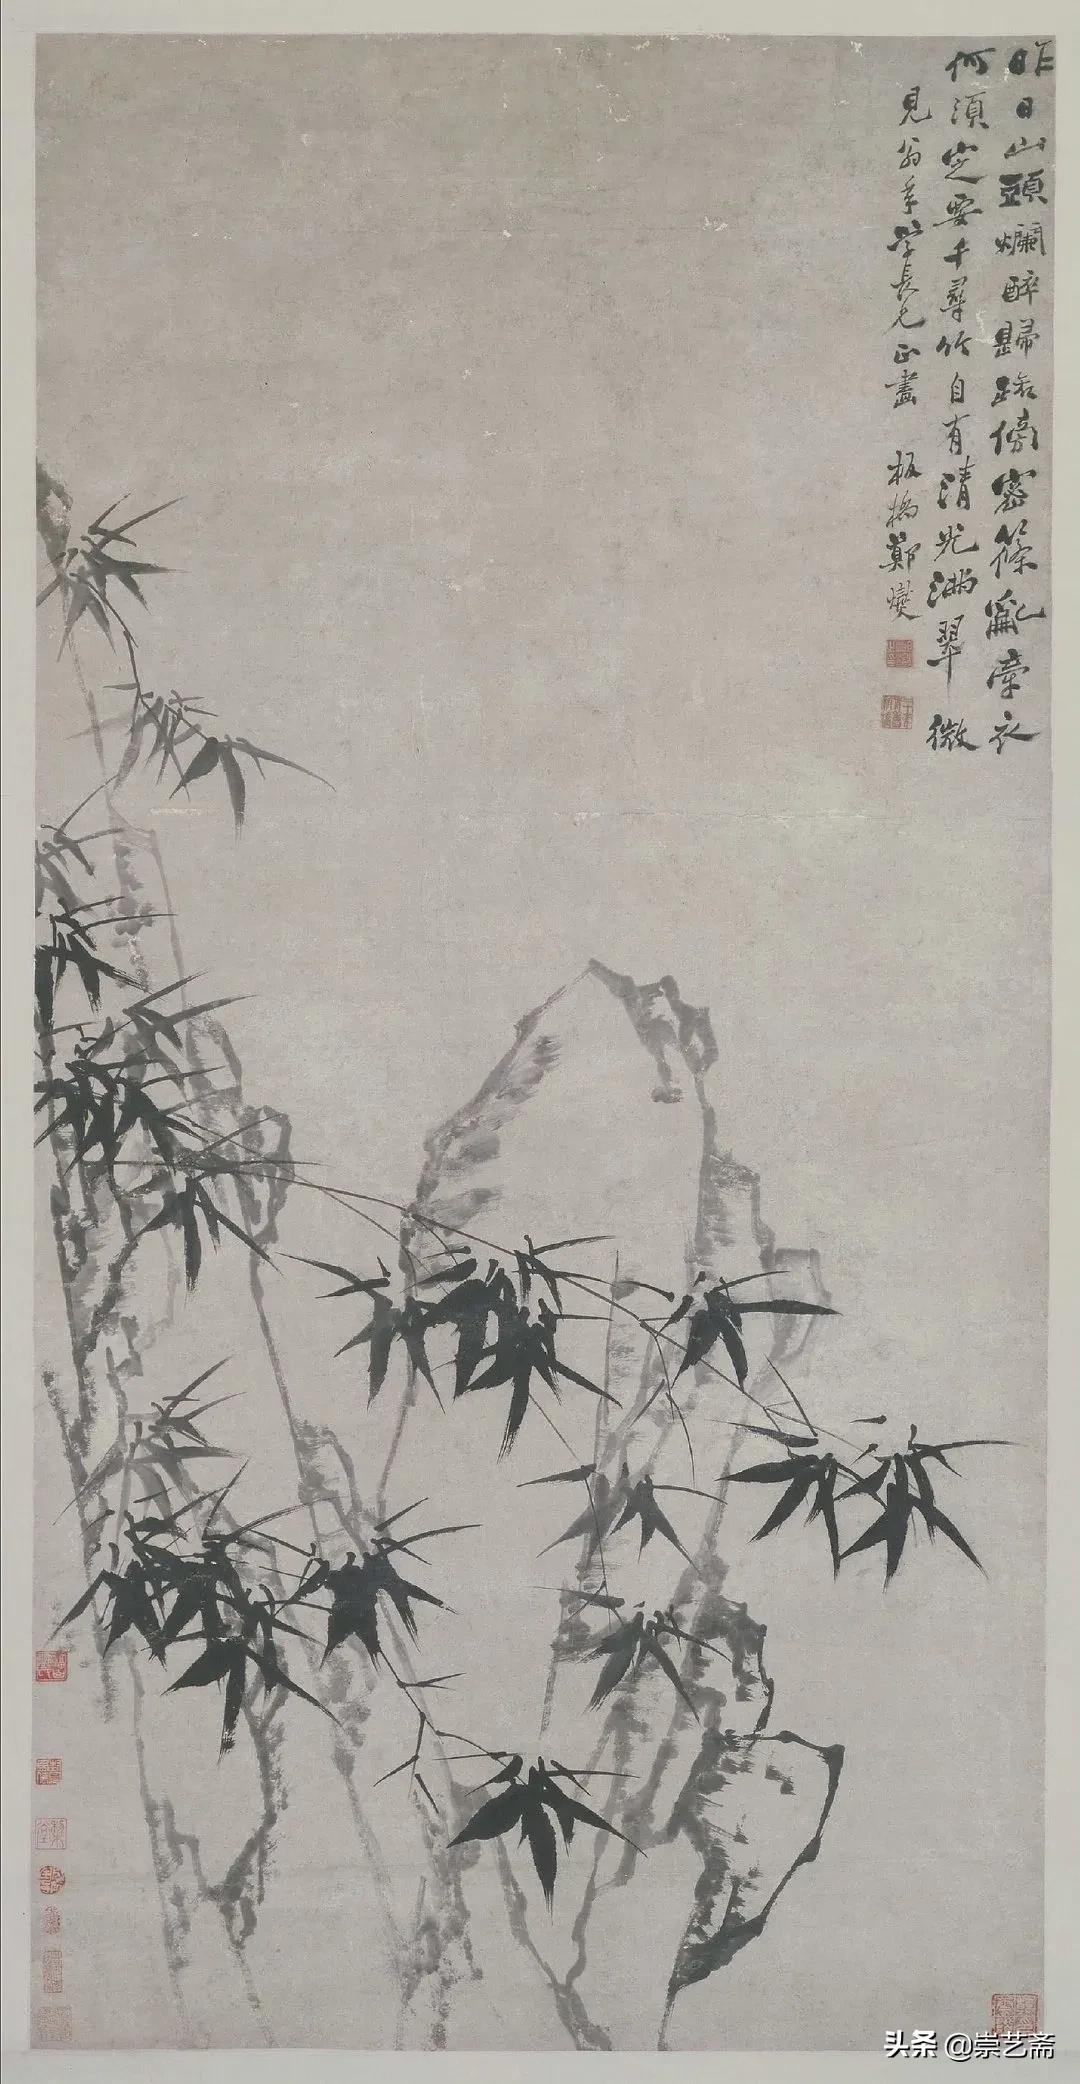 昨日山頭爛醉歸路傍密篠亂牽衣
何須定要千尋竹自有清光滿翠微
見翁年學長兄正畫 板橋鄭燮
头条 @崇艺斋